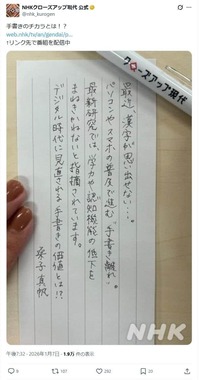 NHKクローズアップ現代 公式
@nhk_kurogen
手書きのチカラとは！？
↑リンク先で番組を配信中
クローズアップ現代
最近、漢字が思い出せない…。
パソコンやスマホの普及で進む“手書き離れ”。
最新研究では、学力や認知機能の低下を
まねきかねないと指摘されています。
デジタル時代に見直される手書きの価値とは!?
桑子 真帆
NHK
午後7:32 · 2026年1月7日 · 1.9万 件の表示